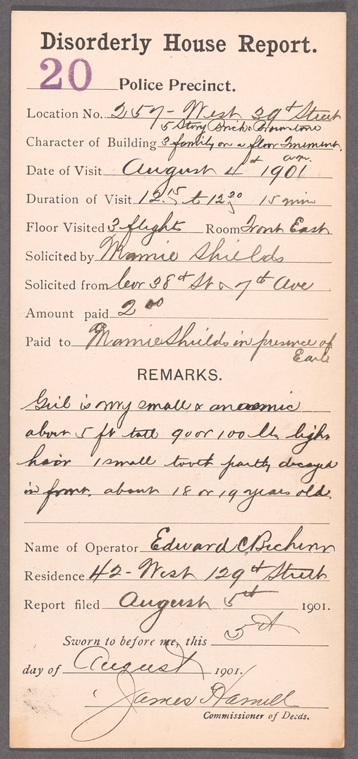 Disorderly House Report.
20 Police Precinct.
Location No. 257 - West 39th Street
5 Story Brick & Brownstone
Character of Building 3 family on a floor Tenement.
Date of Visit August 4th 1901 am.
Duration of Visit 12.15 to 12.30 15 min
Floor Visited 3 flight Room Front East
Solicited by Mamie Shields
Solicited from Cor 38th St & 7th Ave
Amount paid 2.00
Paid to Mamie Shields in presence of
Earle
REMARKS.
Girl is very small & anaemic
about 5 ft tall 90 or 100 lbs light
hair 1 small tooth partly decayed
in front. about 18 or 19 years old.
Name of Operator Edward C. Becherer
Residence 42 - West 129th Street
Report filed August 5th 1901.
Sworn to before me, this 5th
day of August 1901.
James Hamill
Commissioner of Deeds.